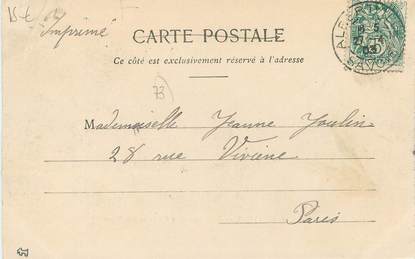 15€
Imprimé
CARTE POSTALE
Ce côté est exclusivement réservé à l'adresse
73
Mademoiselle Jeanne Joulin
28 rue Vivienne
Paris